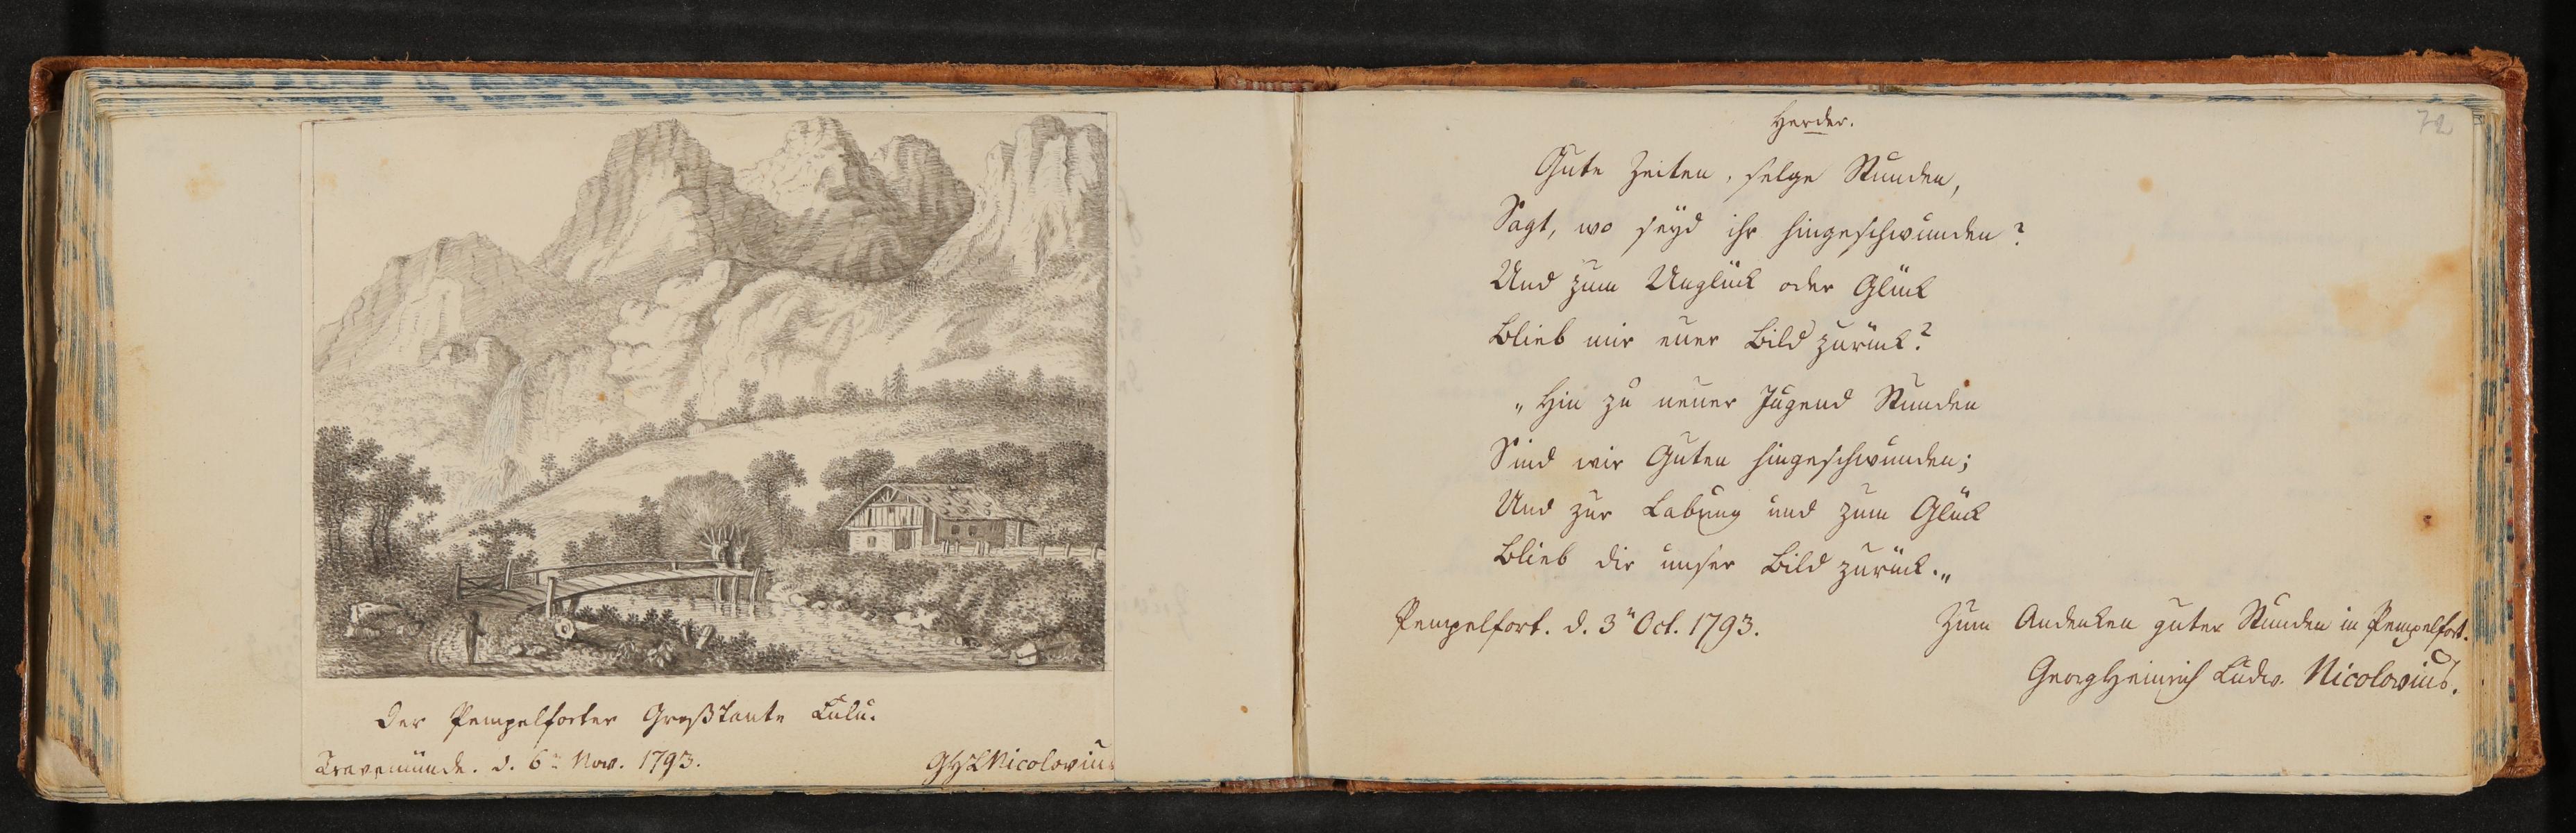 Der Pempelforter Großtante Lulu.
Travemünde. d. 6n Nov. 1793.
GHLNicolovius
72
Herder.
Gute Zeiten, selge Stunden,
Sagt, wo seyd ihr hingeschwunden?
Und zum Unglück oder Glück
Blieb mir euer Bild zurück?
„Hin zu neuer Jugend Stunden
Sind wir Guten hingeschwunden;
Und zur Labung und zum Glück
Blieb dir unser Bild zurück.„
Pempelfort. d. 3n Oct. 1793.
Zum Andenken guter Stunden in Pempelfort.
Georg Heinrich Ludw. Nicolovius.